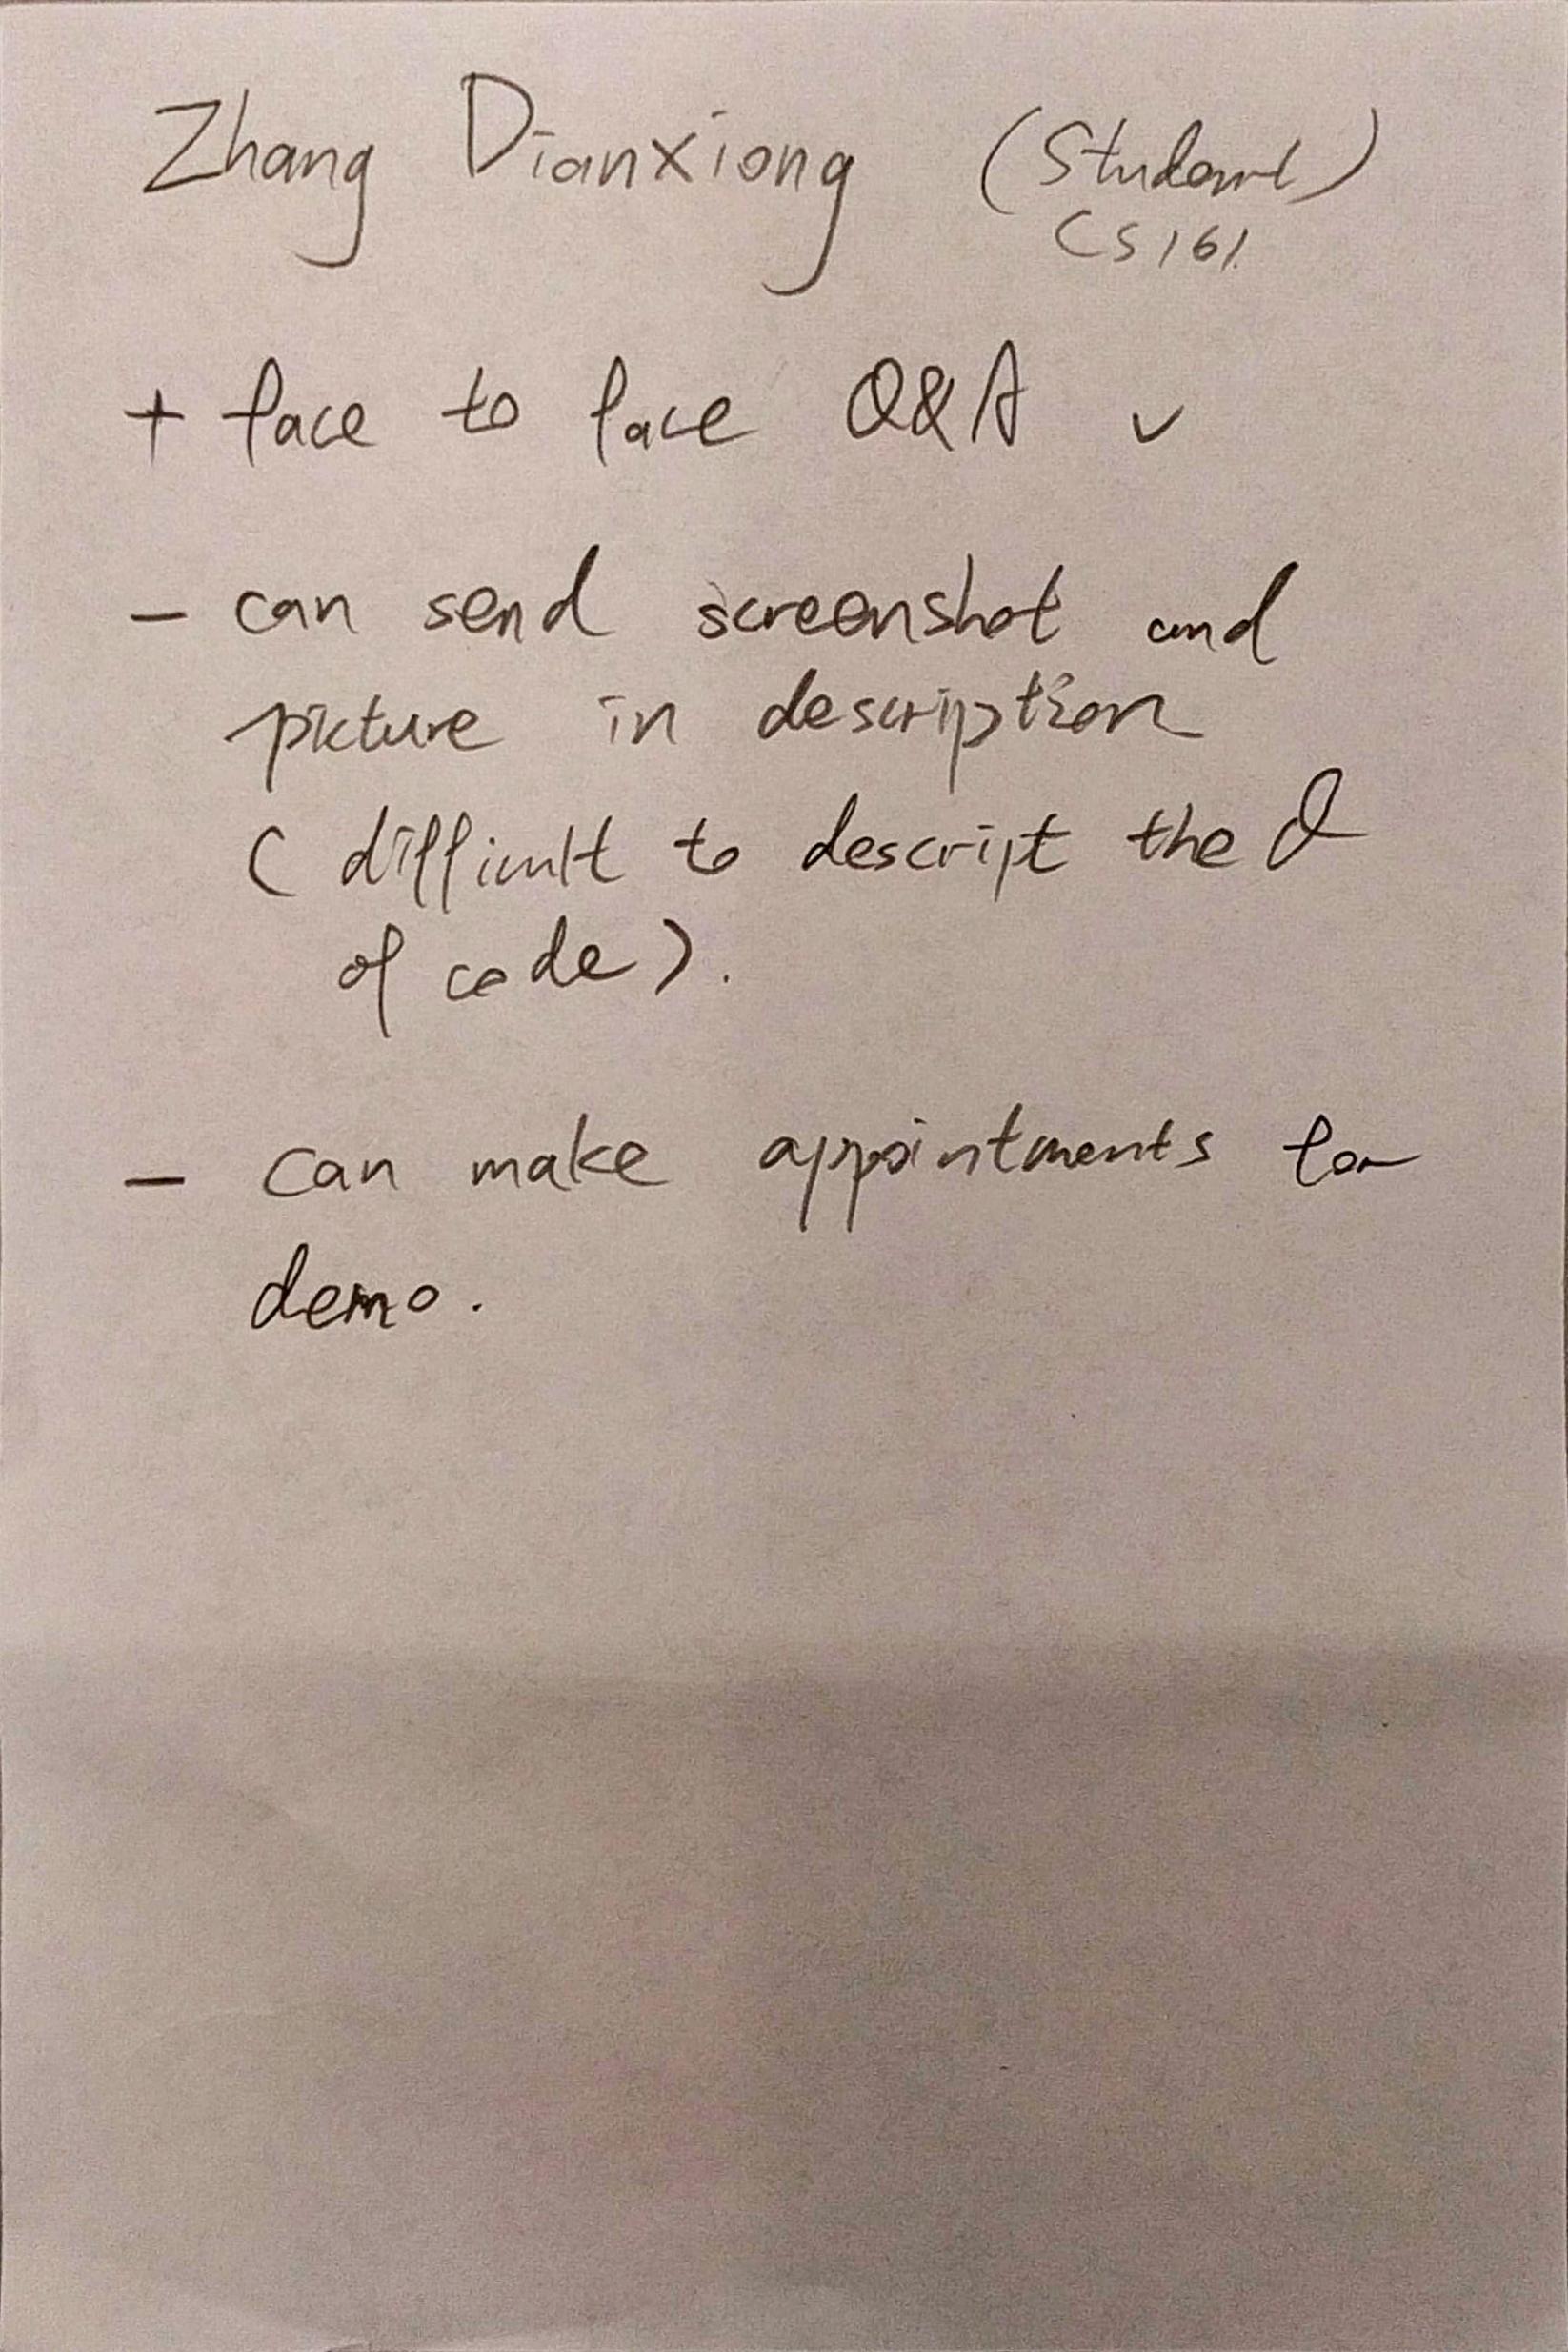 Zhang Dianxiong (Student)
CS161
+ face to face Q&A ✓
- can send screenshot and
picture in description
( difficult to descript the Q
of code ).
- can make appointments for
demo.